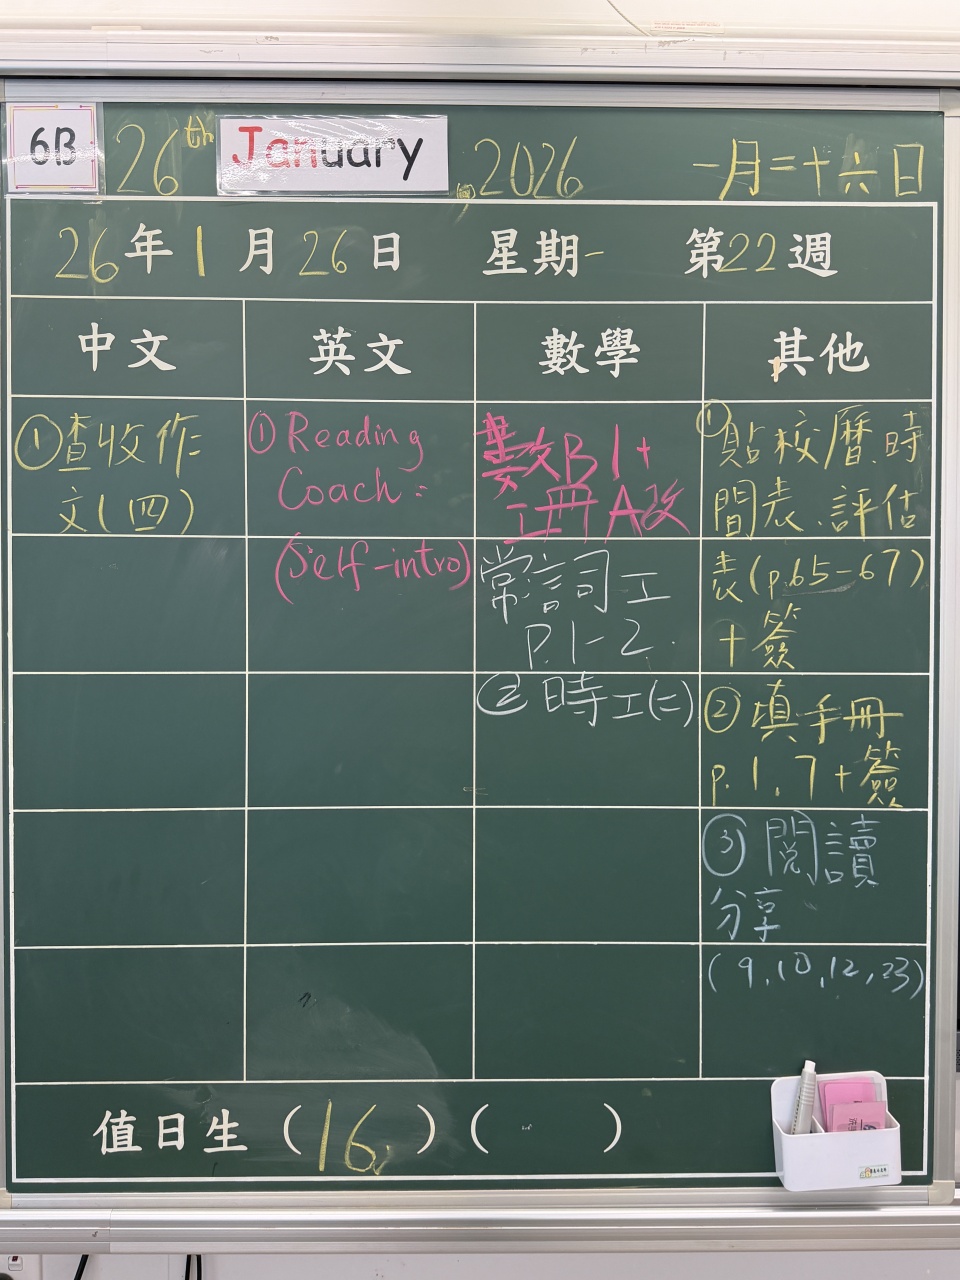 6B 26th January 2026 一月二十六日
26年1月26日 星期一 第22週
中文 英文 數學 其他
①查收作
文(四)
①Reading
Coach:
(Self-intro)
數B1+
工冊A改
常詞工
P.1-2.
②時工(二)
①貼校曆、時
間表、評估
表(p.65-67)
+簽
②填手冊
p.1,7+簽
③閱讀
分享
(9,10,12,23)
值日生(16)( )